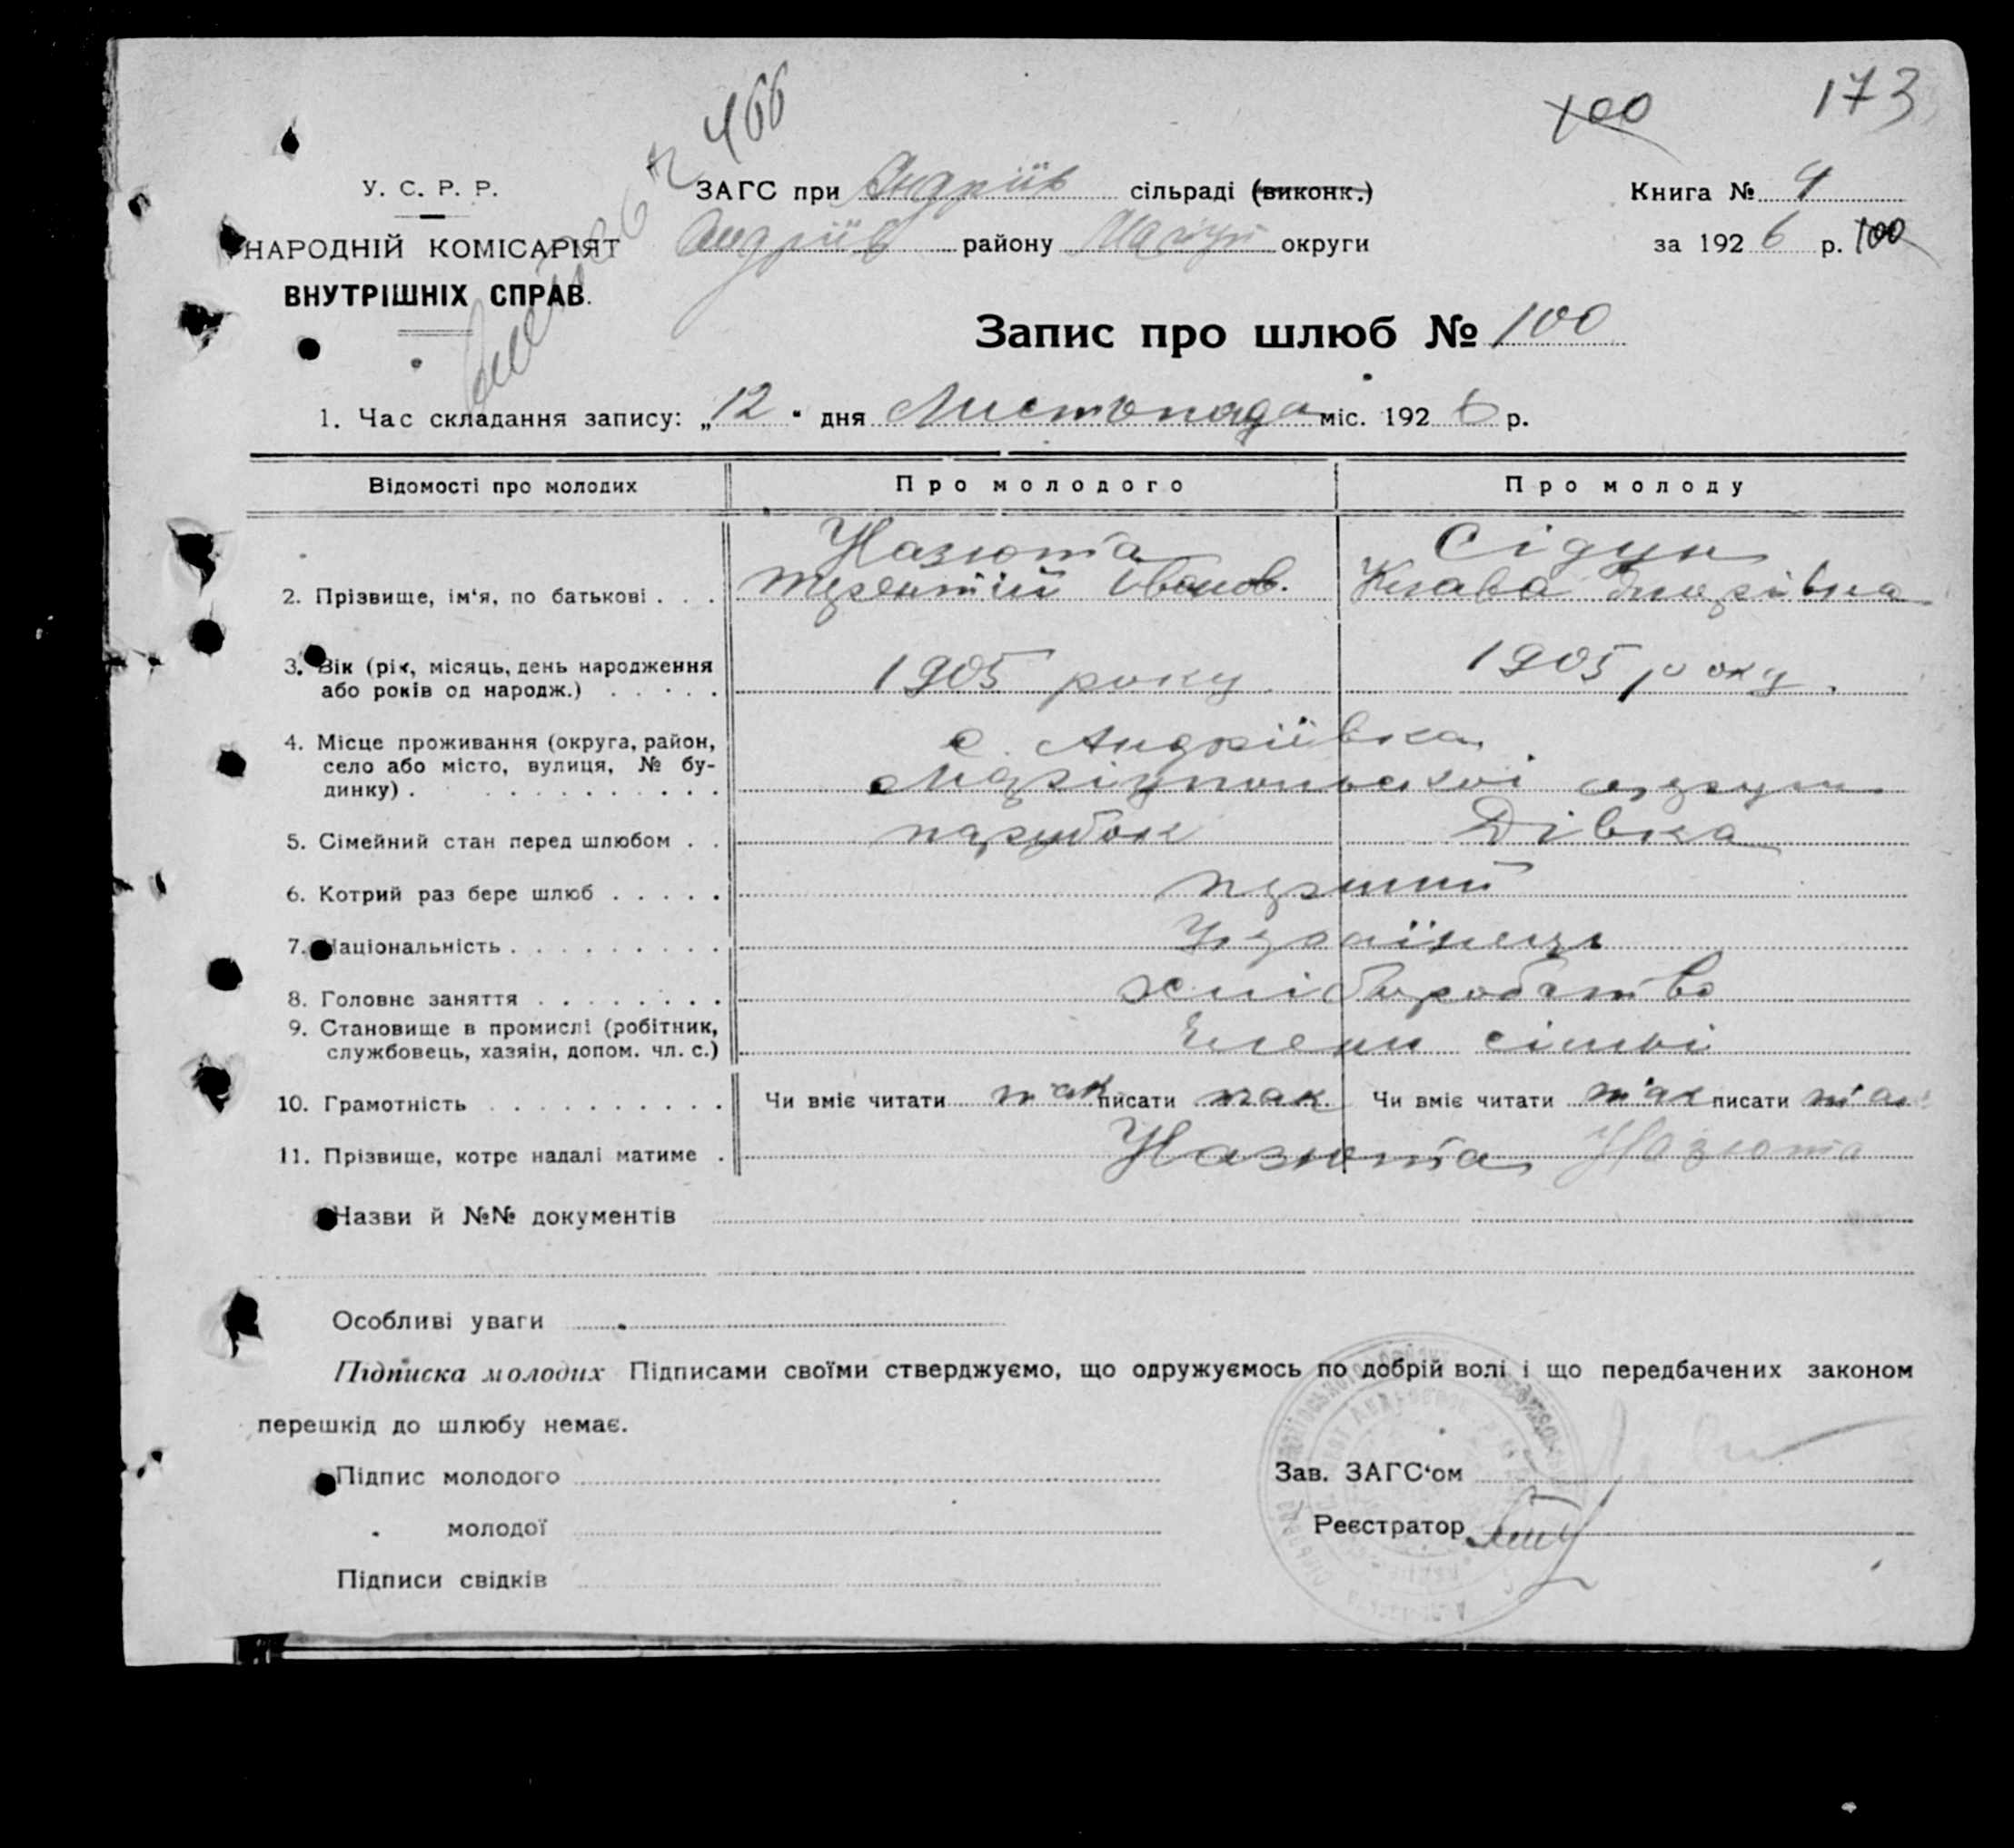 466
100 173
У. С. Р. Р.
НАРОДНІЙ КОМІСАРІЯТ
ВНУТРІШНІХ СПРАВ.
ЗАГС при Андріїв сільраді (виконк.)
Андріїв району Маріуп округи
Книга № 4
за 1926 р. 100
Запис про шлюб № 100
1. Час складання запису: „12" дня Листопада міс. 1926 р.
Відомості про молодих Про молодого Про молоду
Назюта Сідун
2. Прізвище, ім'я, по батькові . . . Терентій Іванов. Клава
3. Вік (рік, місяць, день народження
або років од народж.) . . . . . 1905 року. 1905 року.
4. Місце проживання (округа, район, с. Андріївка
село або місто, вулиця, № бу-
динку) . . . . . . . . . . . Маріупольської округи
5. Сімейний стан перед шлюбом . . парубок Дівка
6. Котрий раз бере шлюб . . . . . перший
7. Національність . . . . . . . . . Українець
8. Головне заняття . . . . . . . . хліборобство
9. Становище в промислі (робітник,
службовець, хазяїн, допом. чл. с.) Члени сімьі
10. Грамотність . . . . . . . . . . Чи вміє читати так писати так Чи вміє читати так писати так
11. Прізвище, котре надалі матиме . Назюта Назюта
Назви й №№ документів
Особливі уваги
Підписка молодих Підписами своїми стверджуємо, що одружуємось по добрій волі і що передбачених законом
перешкід до шлюбу немає.
Підпис молодого
Зав. ЗАГС'ом
" молодої
Реєстратор
Підписи свідків